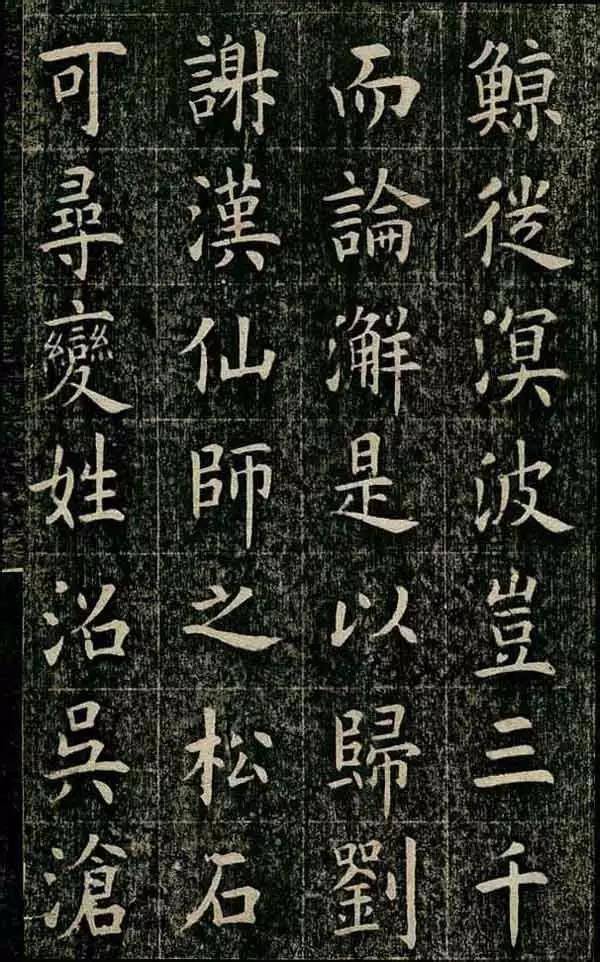 鯨從溟波豈三千
而論澥是以歸劉
謝漢仙師之松石
可尋變姓沼吳滄